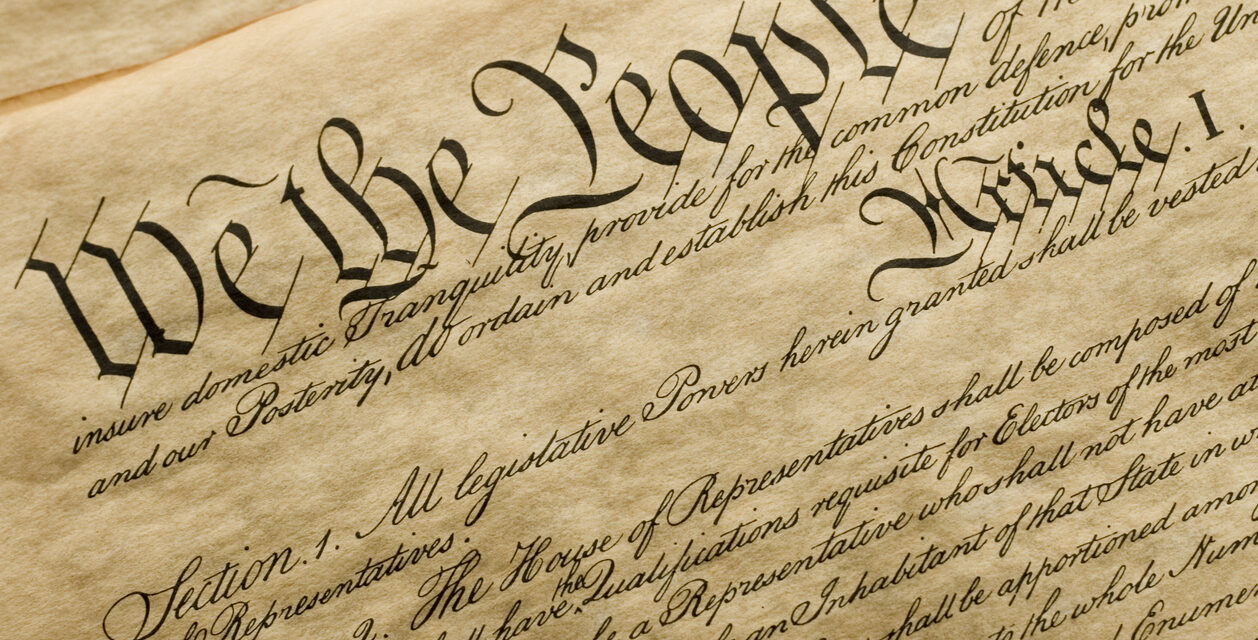 We the People
of the
insure domestic Tranquility, provide for the common defence,
and our Posterity, do ordain and establish this Constitution for the
Article. I.
Section. 1. All legislative Powers herein granted shall be vested
Representatives.
2. The House of Representatives shall be composed of
have the Qualifications requisite for Electors of the most
be a Representative who shall not have
an Inhabitant of that State in
shall be apportioned
to the whole